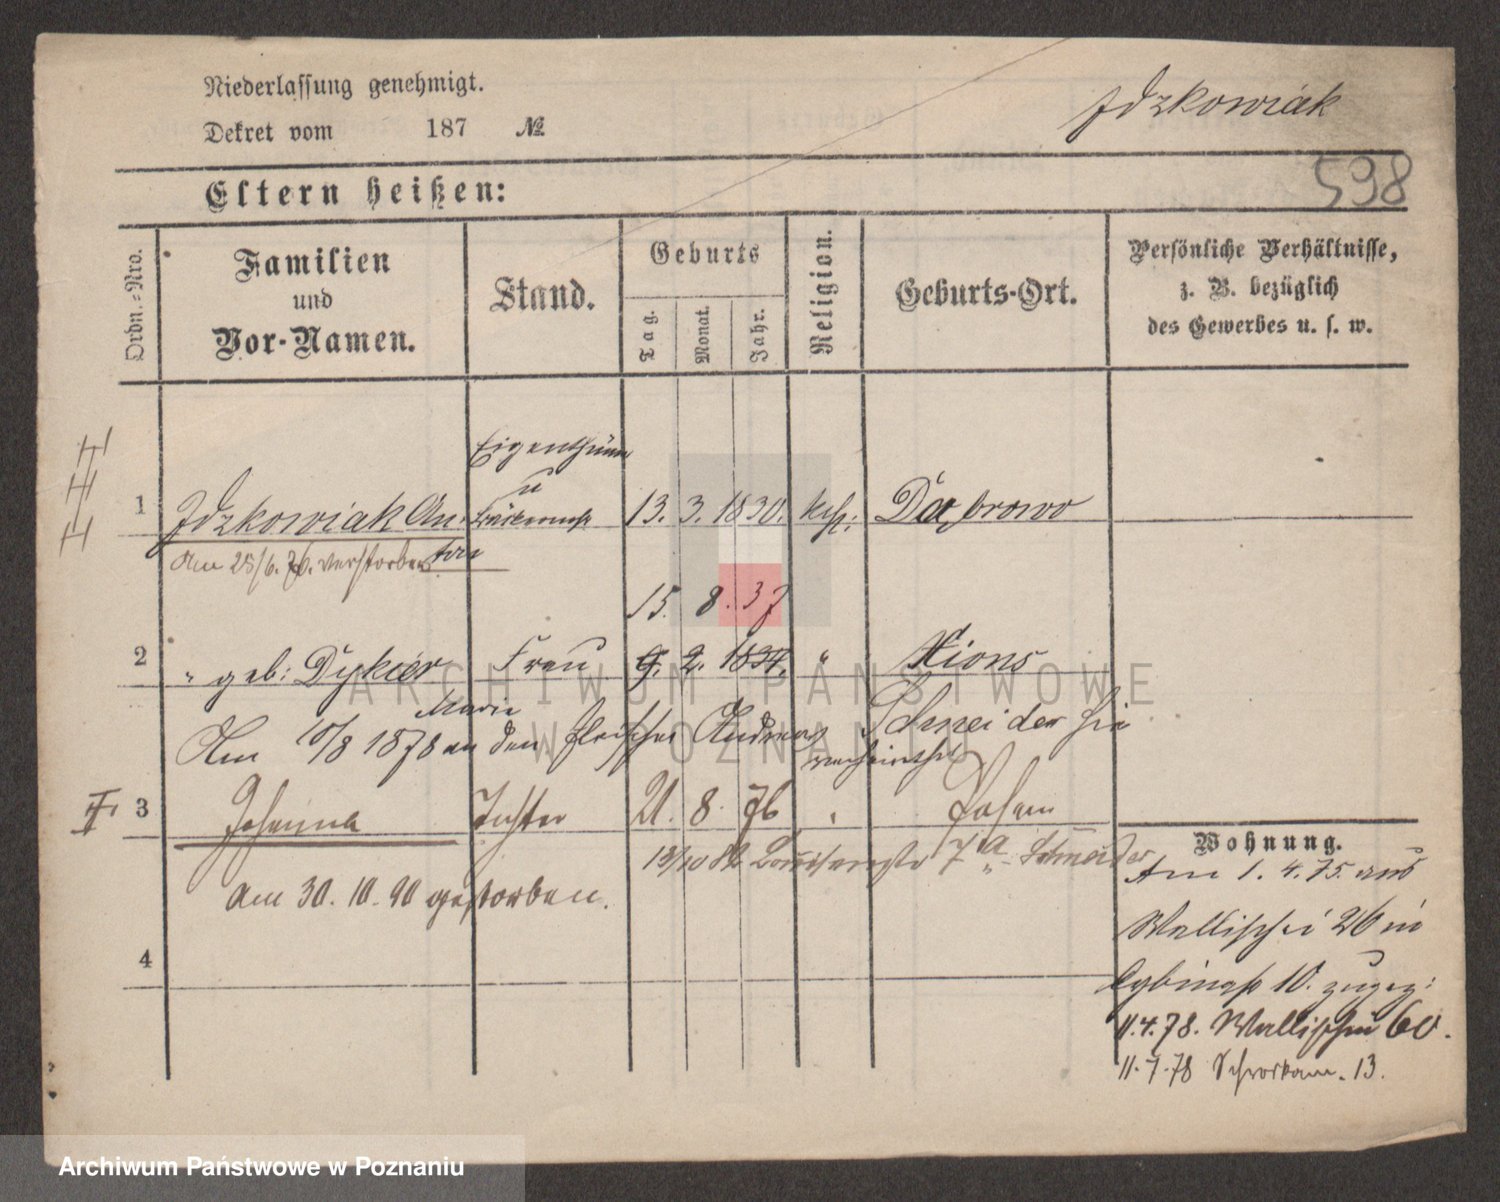 Niederlassung genehmigt.
Dekret vom 187 №
Idzkowiak
598
Eltern heißen:
Ordn.-Nro.
Familien
und
Vor-Namen.
Stand.
Geburts
Tag.
Monat.
Jahr.
Religion.
Geburts-Ort.
Persönliche Verhältnisse,
z. B. bezüglich
des Gewerbes u. s. w.
Eigenthümer
u
1 Idzkowiak An- 13. 3. 1830. kath: Dąbrowo
ton
Am 25/6. 76. verstorben
15. 8. 37
2 " geb: Dykier Frau 9. 2. 1834. " Xions
Marie
Am 10/8 1878 an den Fleischer Andreas Schneider hie
verheirathet
3 Johanna Tochter 21. 8. 76 " Posen
13/10 82 Louisenstr 7a " Schneider
Am 30. 10. 90 gestorben.
4
Wohnung.
Am 1. 4. 75. aus
Wallischei 26 in
10. zugez:
11.4.78. Wallischei 60.
11.7.78 Schrodkam. 13.
ARCHIWUM PAŃSTWOWE
W POZNANIU
Archiwum Państwowe w Poznaniu